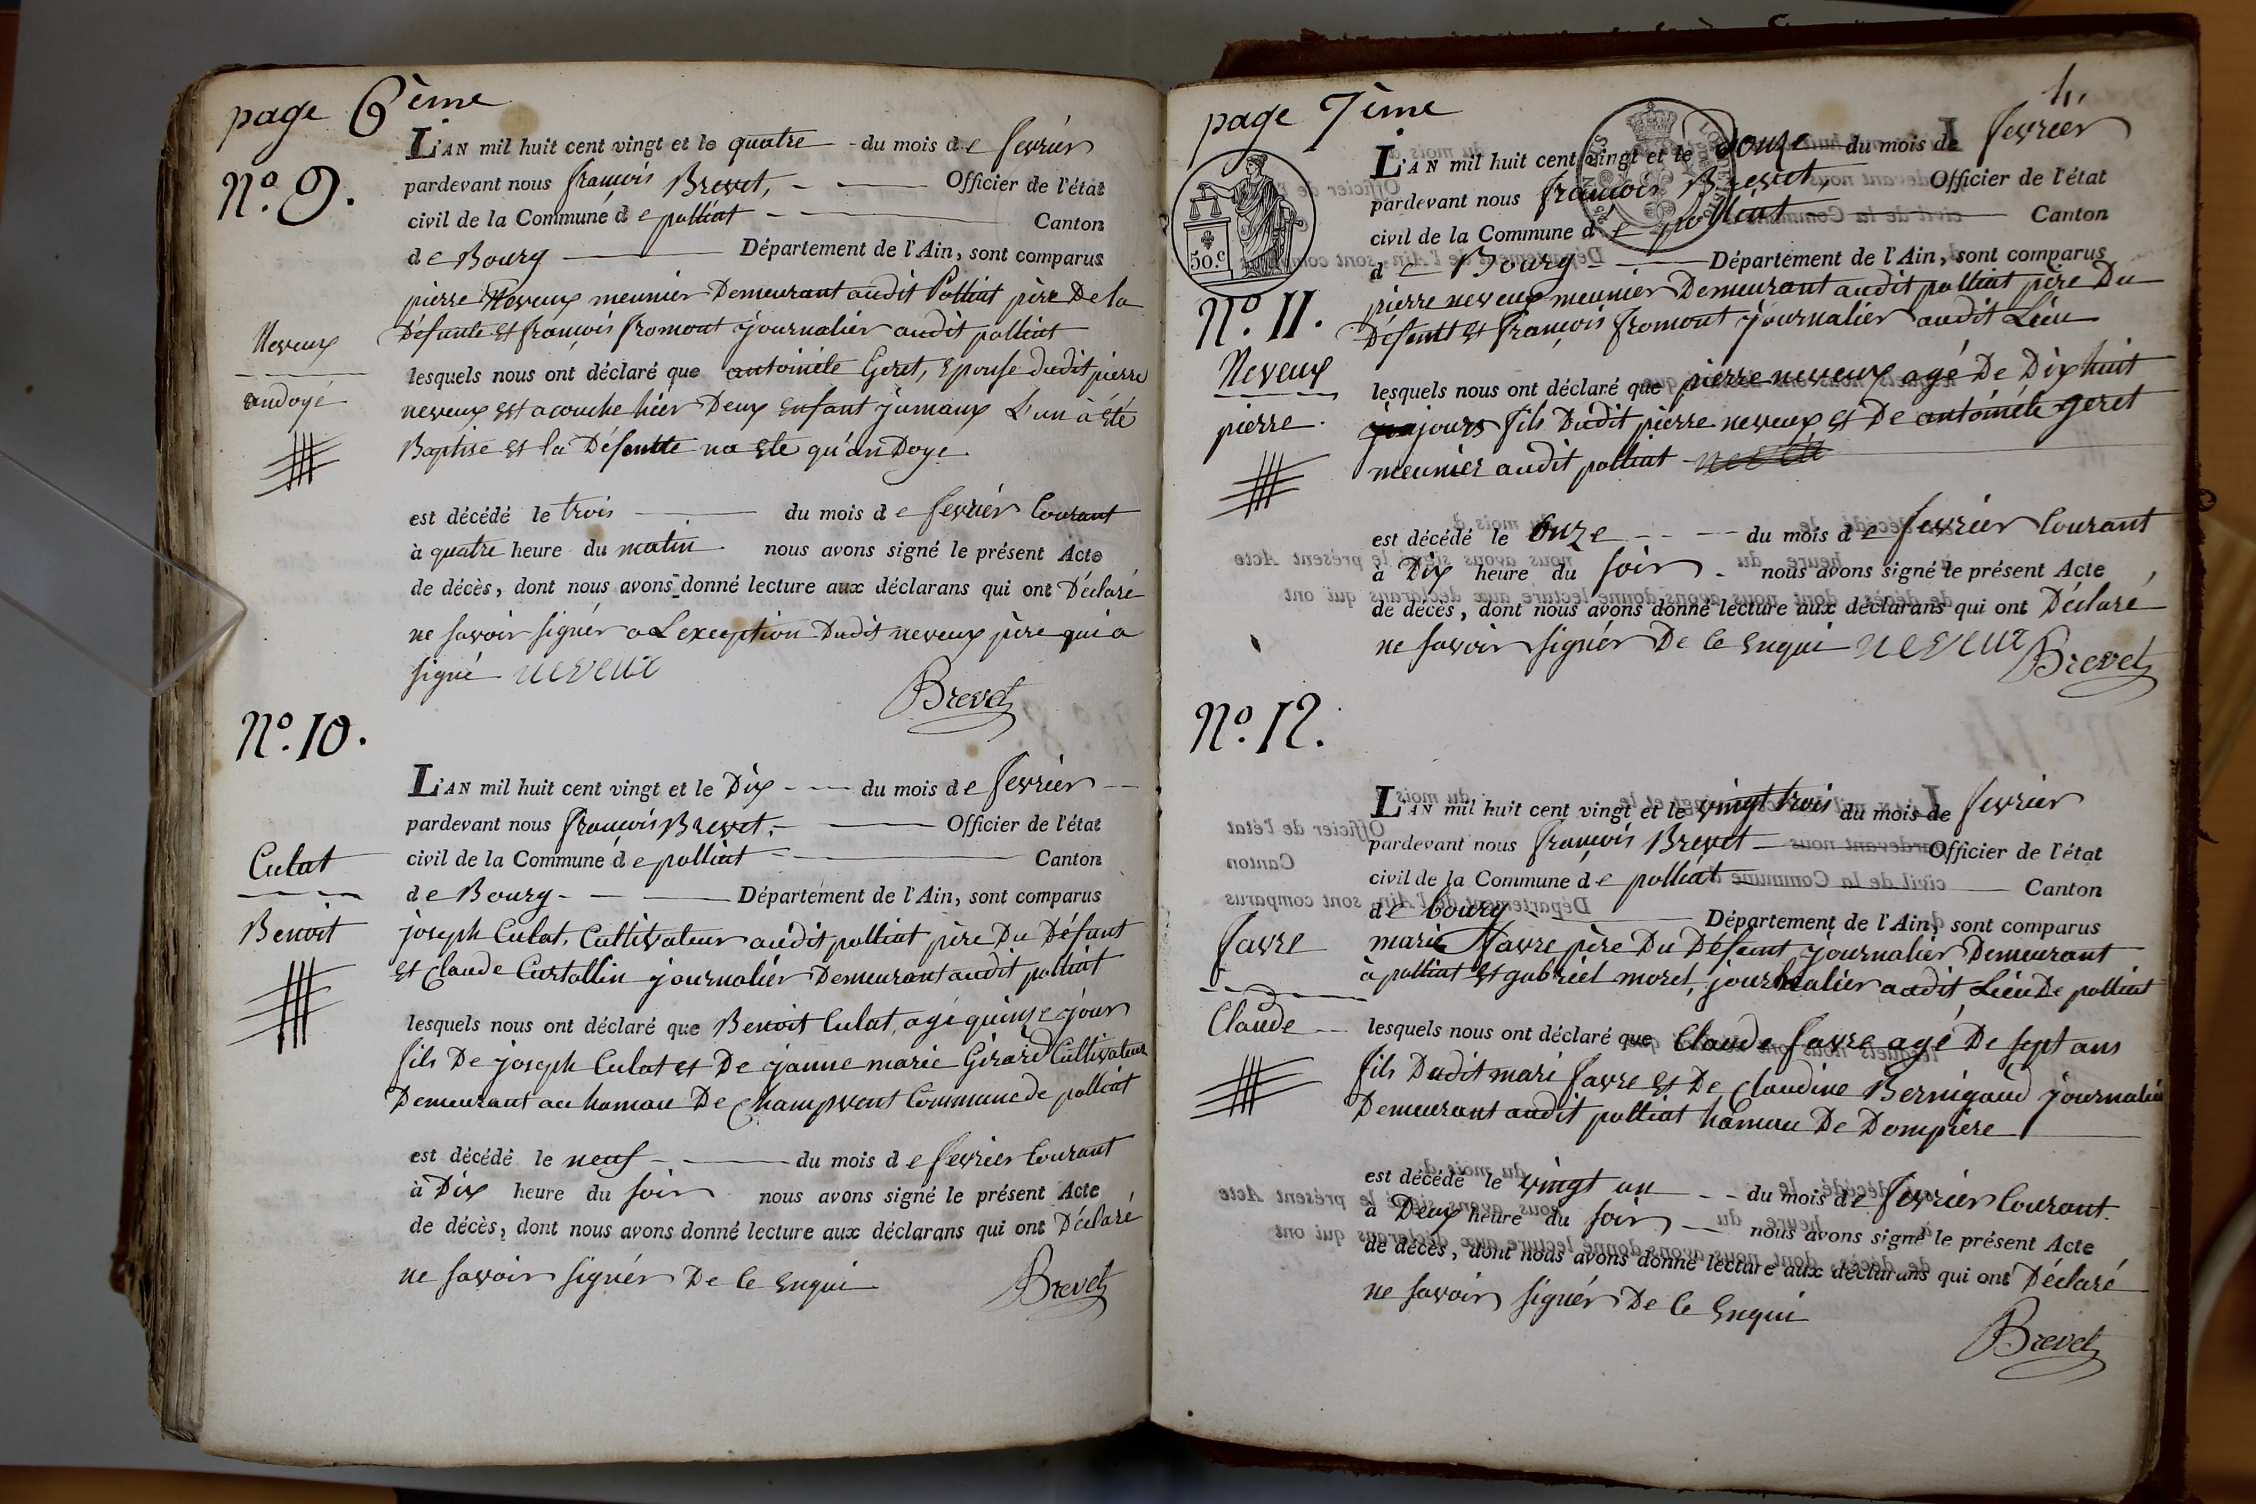 page 6ème
N.º 9.
L'AN mil huit cent vingt et le quatre - du mois de fevrier
pardevant nous françois Brevet, - — Officier de l'état
civil de la Commune de polliat - — Canton
de Bourg — Département de l'Ain, sont comparus
pierre Neveux meunier Demeurant audit Polliat père De la
Défunte et françois fromont journalier audit polliat
Neveux
andoyé
lesquels nous ont déclaré que antoinéte Geret, Epouse dudit pierre
neveux est acouche hier Deux enfant jumaux L'un à été
Baptise et la Défuntte na ete qu'an Doye.
est décédé le trois — du mois de fevrier Courant
à quatre heure du matin. nous avons signé le présent Acte
de décès, dont nous avons donné lecture aux déclarans qui ont Déclaré
ne savoir signér a L'exception Dudit neveux père qui a
signé neveux
Brevet
N.º 10.
L'AN mil huit cent vingt et le Dix - - — du mois de fevrier - —
pardevant nous françois Brevet. — Officier de l'état
civil de la Commune de polliat - — Canton
de Bourg - — Département de l'Ain, sont comparus
Culat
Benoit
joseph Culat, Cultivateur audit polliat père Du Défunt
et Claude Curtallin journalier Demeurant audit polliat
lesquels nous ont déclaré que Benoit Culat, agé quinse jour
fils De joseph Culat et De janne marie Girard Cultivateur
Demeurant au hamau De Champvent Commune de polliat
est décédé le neuf - — du mois de fevrier Courant
à Dix heure du soir nous avons signé le présent Acte
de décès, dont nous avons donné lecture aux déclarans qui ont Déclaré
ne savoir signér De Ce enqui
Brevet
page 7ème
4,
50.c
L'AN mil huit cent vingt et le Douze - du mois de fevrier
pardevant nous françois Brevet, Officier de l'état
civil de la Commune de polliat — Canton
de Bourg - — Département de l'Ain, sont comparus
N.º 11.
pierre neveux meunier Demeurant audit polliat père Du
Défuntt et françois fromont journalier audit Lieu
Neveux
pierre.
lesquels nous ont déclaré que pierre neveux agé De Dix huit
jours fils Dudit pierre neveux et De antoinéte geret
meunier audit polliat
est décédé le Onze - - — du mois de fevrier Courant
à Dix heure du soir - nous avons signé le présent Acte
de décès, dont nous avons donné lecture aux déclarans qui ont Déclaré
ne savoir signér De Ce enqui neveux
Brevet
N.º 12.
L'AN mil huit cent vingt et le vingt trois du mois de fevrier
pardevant nous françois Brevet — Officier de l'état
civil de la Commune de polliat — Canton
de bourg - — Département de l'Ain, sont comparus
favre
Claude
marie favre père Du Défunt journalier Demeurant
à polliat et gabriel morel, journalier audit Lieu De polliat
lesquels nous ont déclaré que Claude favre agé De sept ans
fils Dudit mari favre et De Claudine Bernigaud journalier
Demeurant audit polliat hameau De Dompiere
est décédé le vingt un - - du mois de fevrier Courant.
à Deux heure du soir — nous avons signé le présent Acte
de décès, dont nous avons donné lecture aux déclarans qui ont Déclaré
ne savoir signér De Ce enqui
Brevet